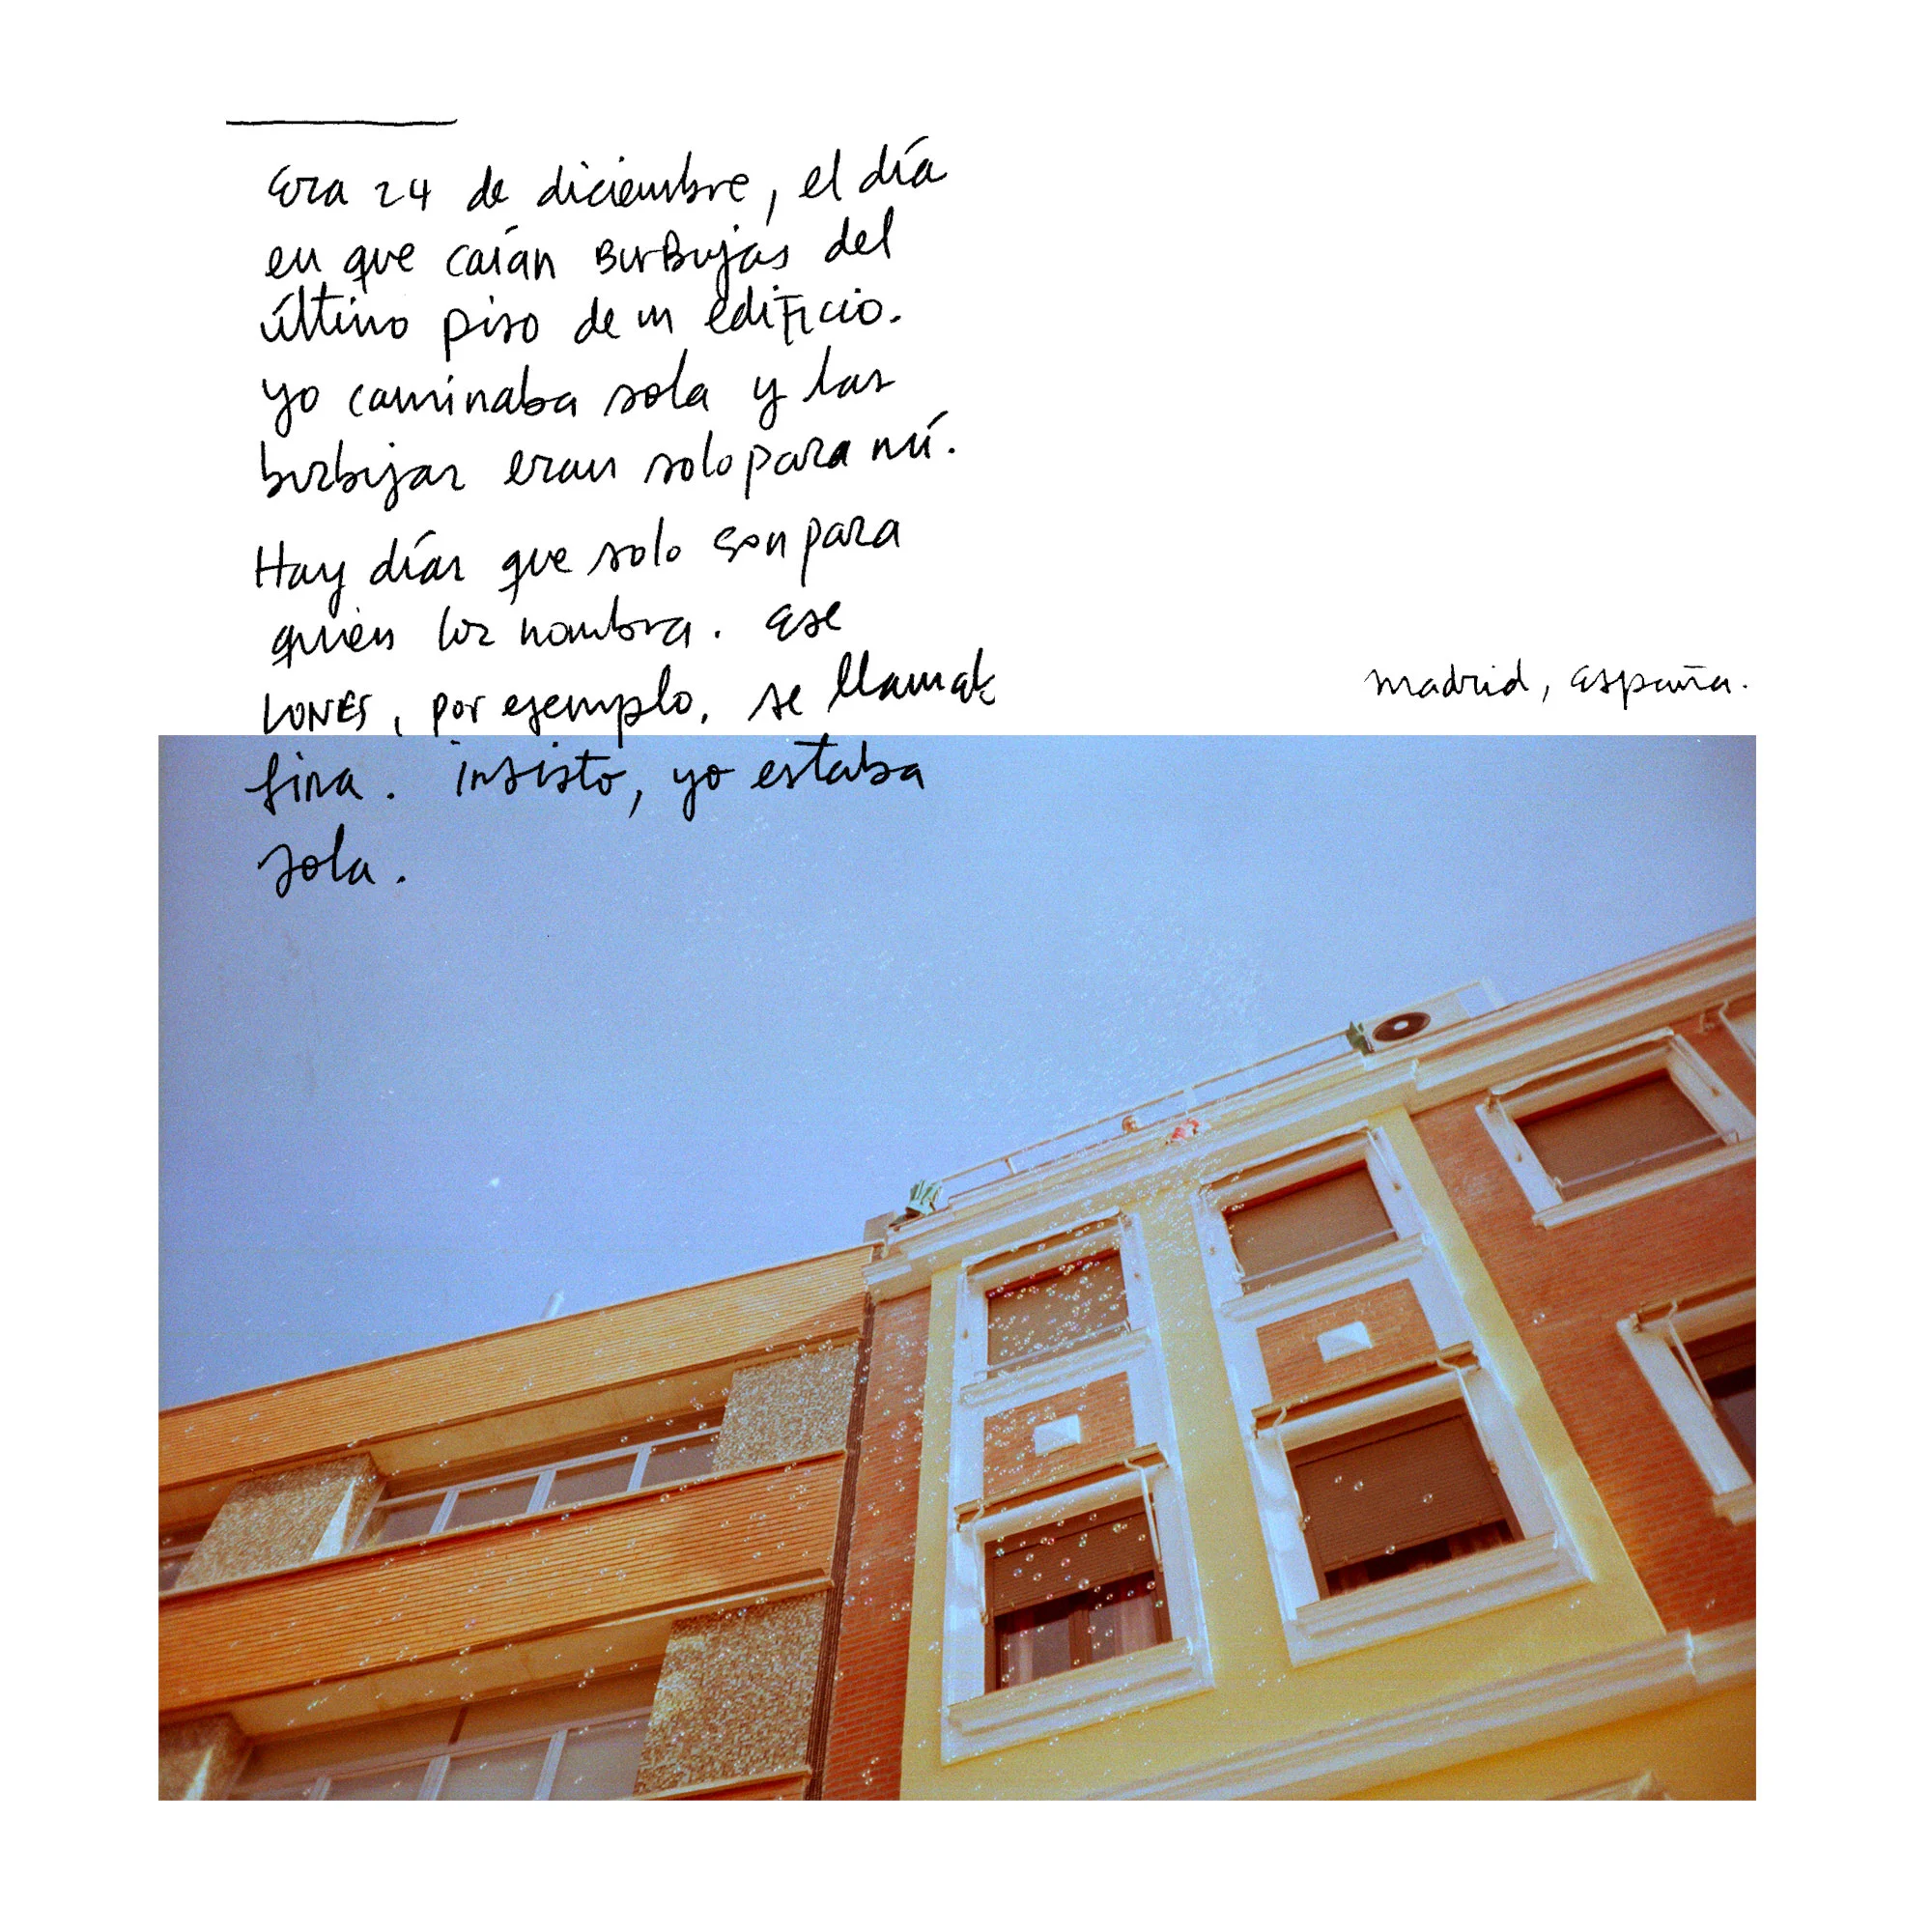 Era 24 de diciembre, el día
en que caían BurBujas del
último piso de un edificio.
yo caminaba sola y las
burbujas eran solo para mí.
Hay días que solo son para
quien los nombra. Ese
LUNES, por ejemplo, se llamab
fina. insisto, yo estaba
sola.
madrid, España.